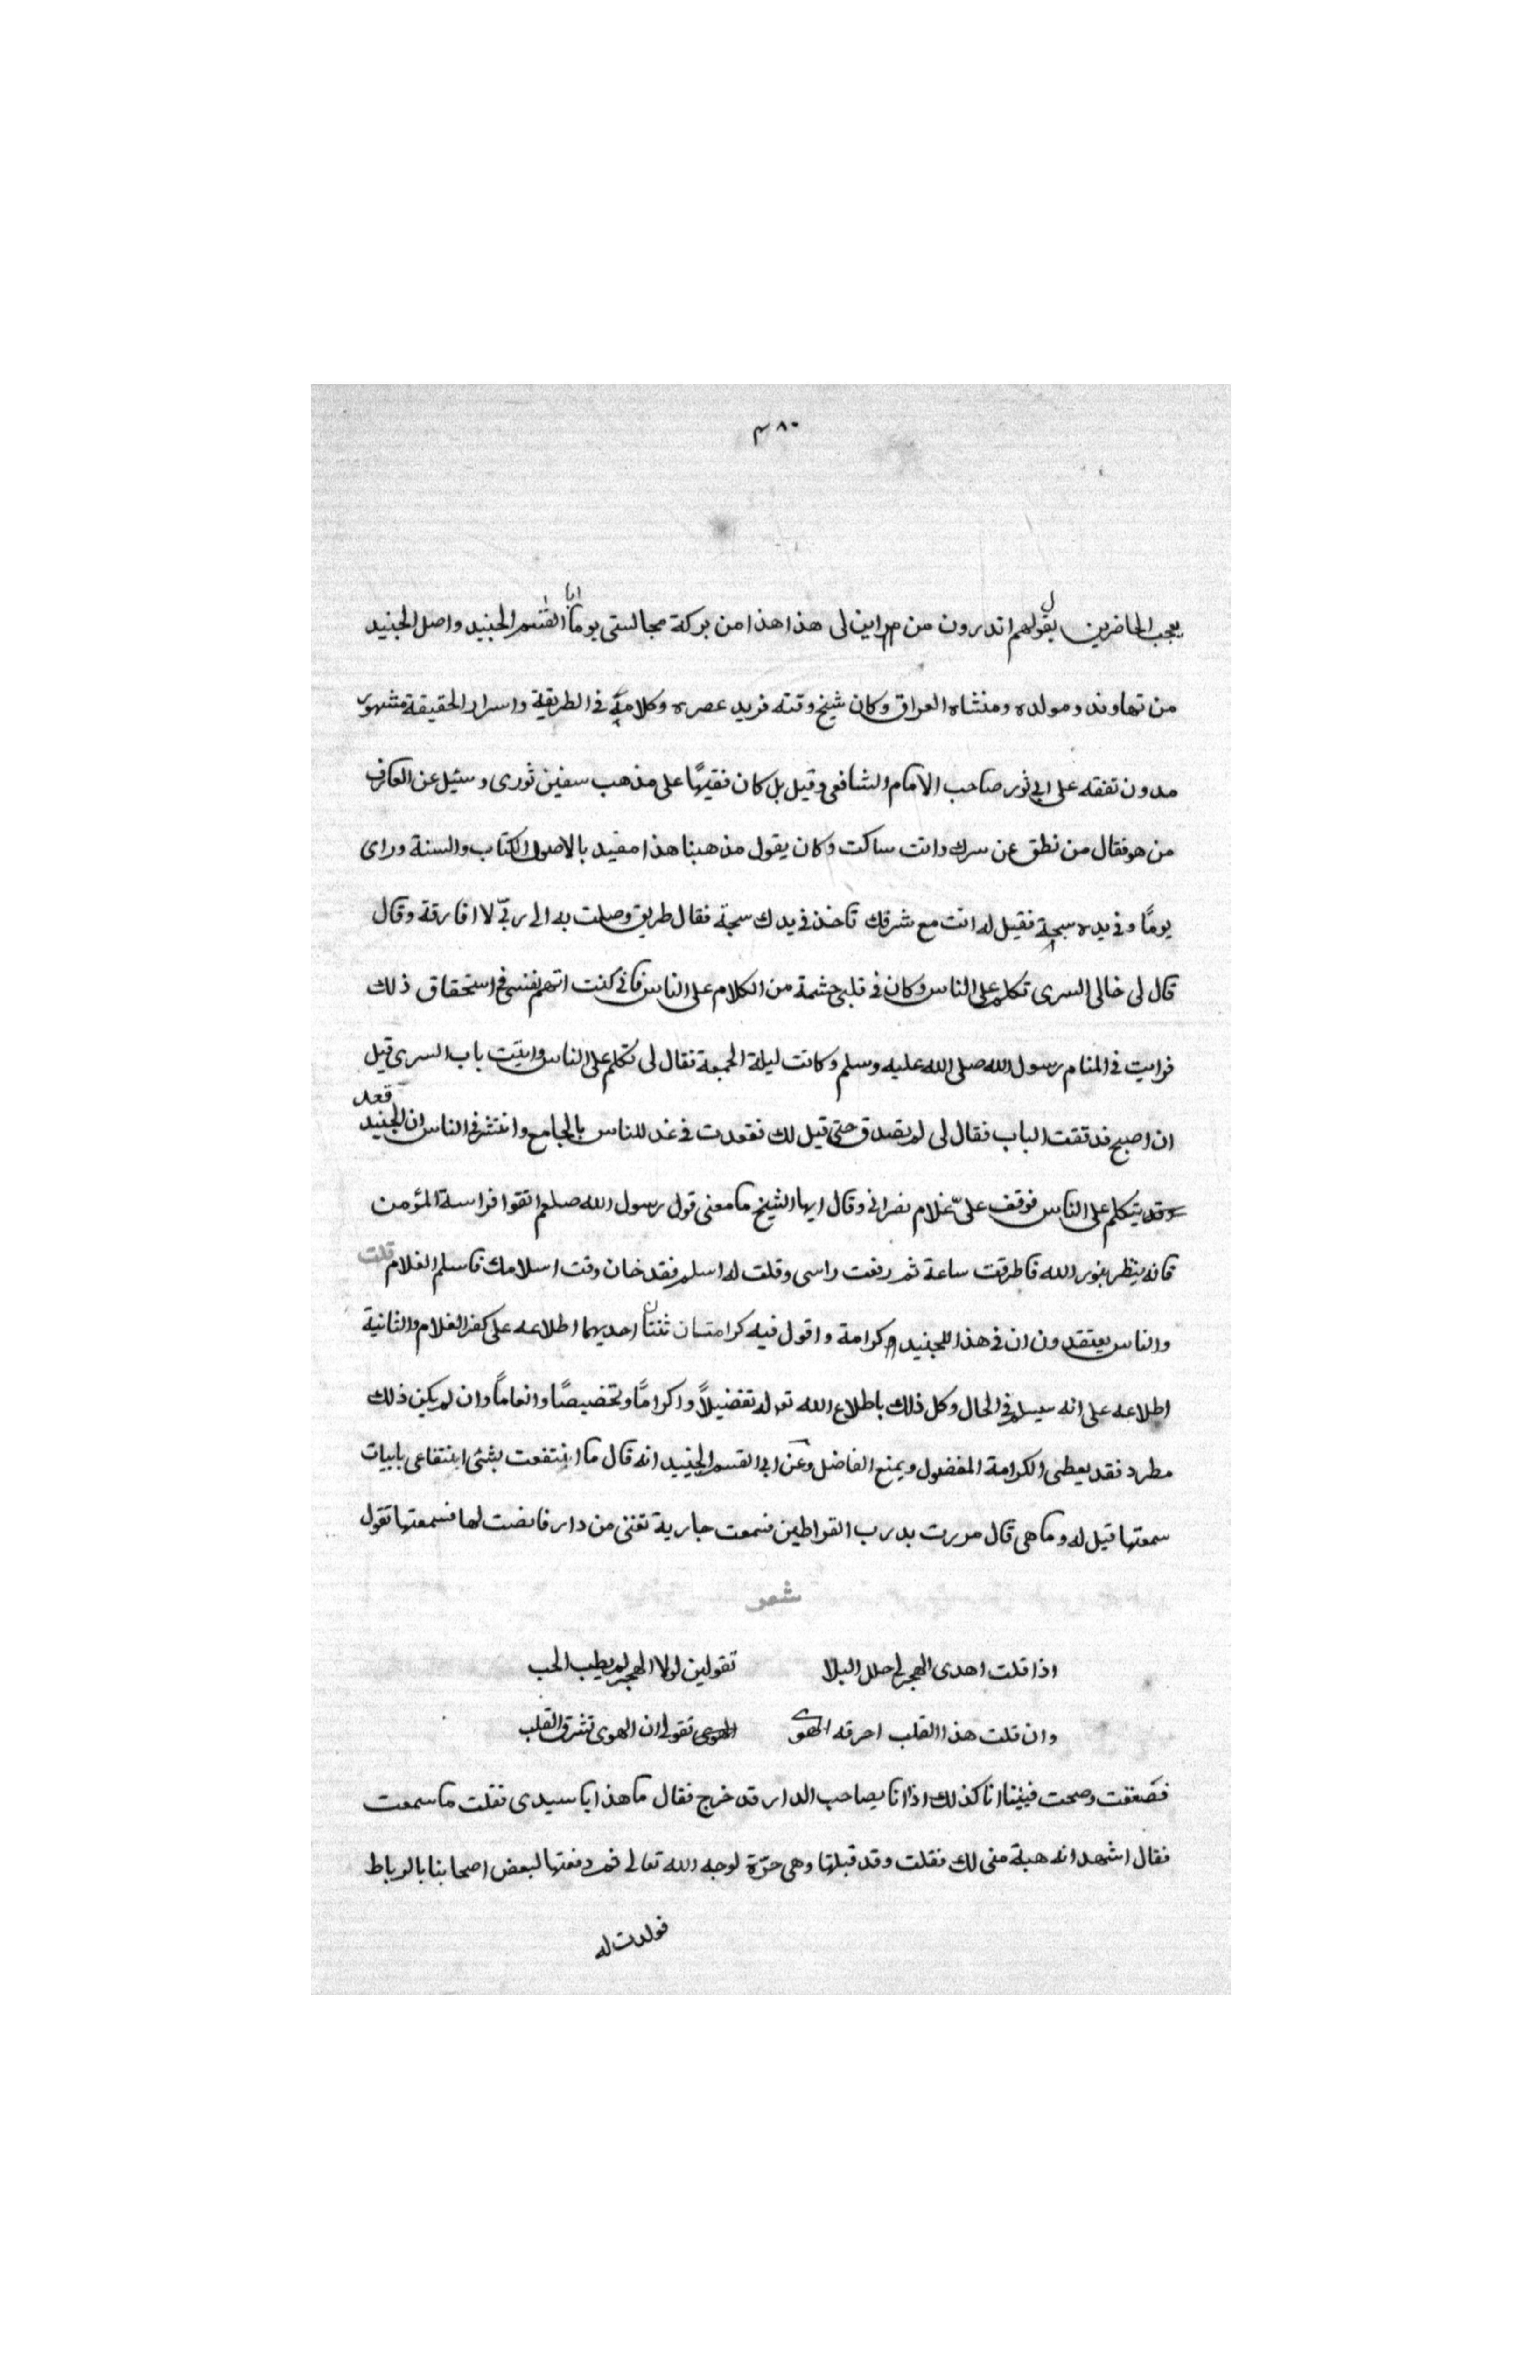 ٣٨٠
يعجب الحاضرين يقول لهم اتدرون من اين لى هذا هذا من بركة مجالستى يوما ابا القسم الجنيد واصل الجنيد
من نهاوند ومولده ومنشاه العراق وكان شيخ وقته فريد عصره وكلامه فى الطريقية واسرار الحقيقة مشهور
مدون تفقه على ابى ثور صاحب الامام الشافعى وقيل بل كان فقيهًا على مذهب سفين ثورى وسئيل عن العارف
من هو فقال من نطق عن سرك وانت ساكت وكان يقول مذهبنا هذا مقيد بالاصول الكتاب والسنة وراى
يومًا وفى يده سبحة فقيل له انت مع شرفك تاخذ فى يدك سبحة فقال طريق وصلت به الى ربّى لا افارقة وقال
قال لى خالى السرى تكلم على الناس وكان فى قلبى حشمة من الكلام على الناس فانى كنت اتهم نفسى فى استحقاق ذلك
فرايت فى المنام رسول الله صلى الله عليه وسلم وكانت ليلة الجمعة فقال لى تكلم على الناس واتيت باب السرى قبل
ان اصبح فدققت الباب فقال لى لم يصدق حتى قيل لك فقعدت فى غد للناس بالجامع وانتشر فى الناس ان الجنيد قعد
وقد يتكلم على الناس فوقف علىّ غلام نصرانى وقال ايها الشيخ ما معنى قول رسول الله صلعم اتقوا فراسة المؤمن
فانه ينظر بنور الله فاطرقت ساعة ثم رفعت راسى وقلت له اسلم فقد خان وقت اسلامك فاسلم الغلام قلت
والناس يعتقدون ان فى هذا للجنيد كرامة واقول فيه كرامتان ثنتان احديهما اطلاعه على كفر الغلام والثانية
اطلاعه على انه سيسلم فى الحال وكل ذلك باطلاع الله تع له تفضيلاً واكرامًا وتخضيصًا وانعاماً وان لم يكن ذلك
مطرد فقد يعطى الكرامة المفضول ويمنع الفاضل وعن ابى القسم الجنيد انه قال ما انتفعت بشئى انتقاعى بابيات
سمعتها قيل له وما هى قال مررت بدرب القراطين فسمعت جارية تغنى من دار فانصت لها فسمعتها تقول
شعر
اذا قلت اهدى الهجر لى حلل البلا تقولين لولا الهجر لم يطب الحب
وان قلت هذا القلب احرقه الهوى الهوى تقولى ان الهوى تشرق القلب
فصعقت وصحت فبينا انا كذلك اذا انا بصاحب الدار قد خرج فقال ما هذا يا سيدى فقلت ما سمعت
فقال اشهد انه هبة منى لك فقلت وقد قبلتها وهى حرّة لوجه الله تعالى ثم دفعتها لبعض اصحابنا بالرباط
فولدت له